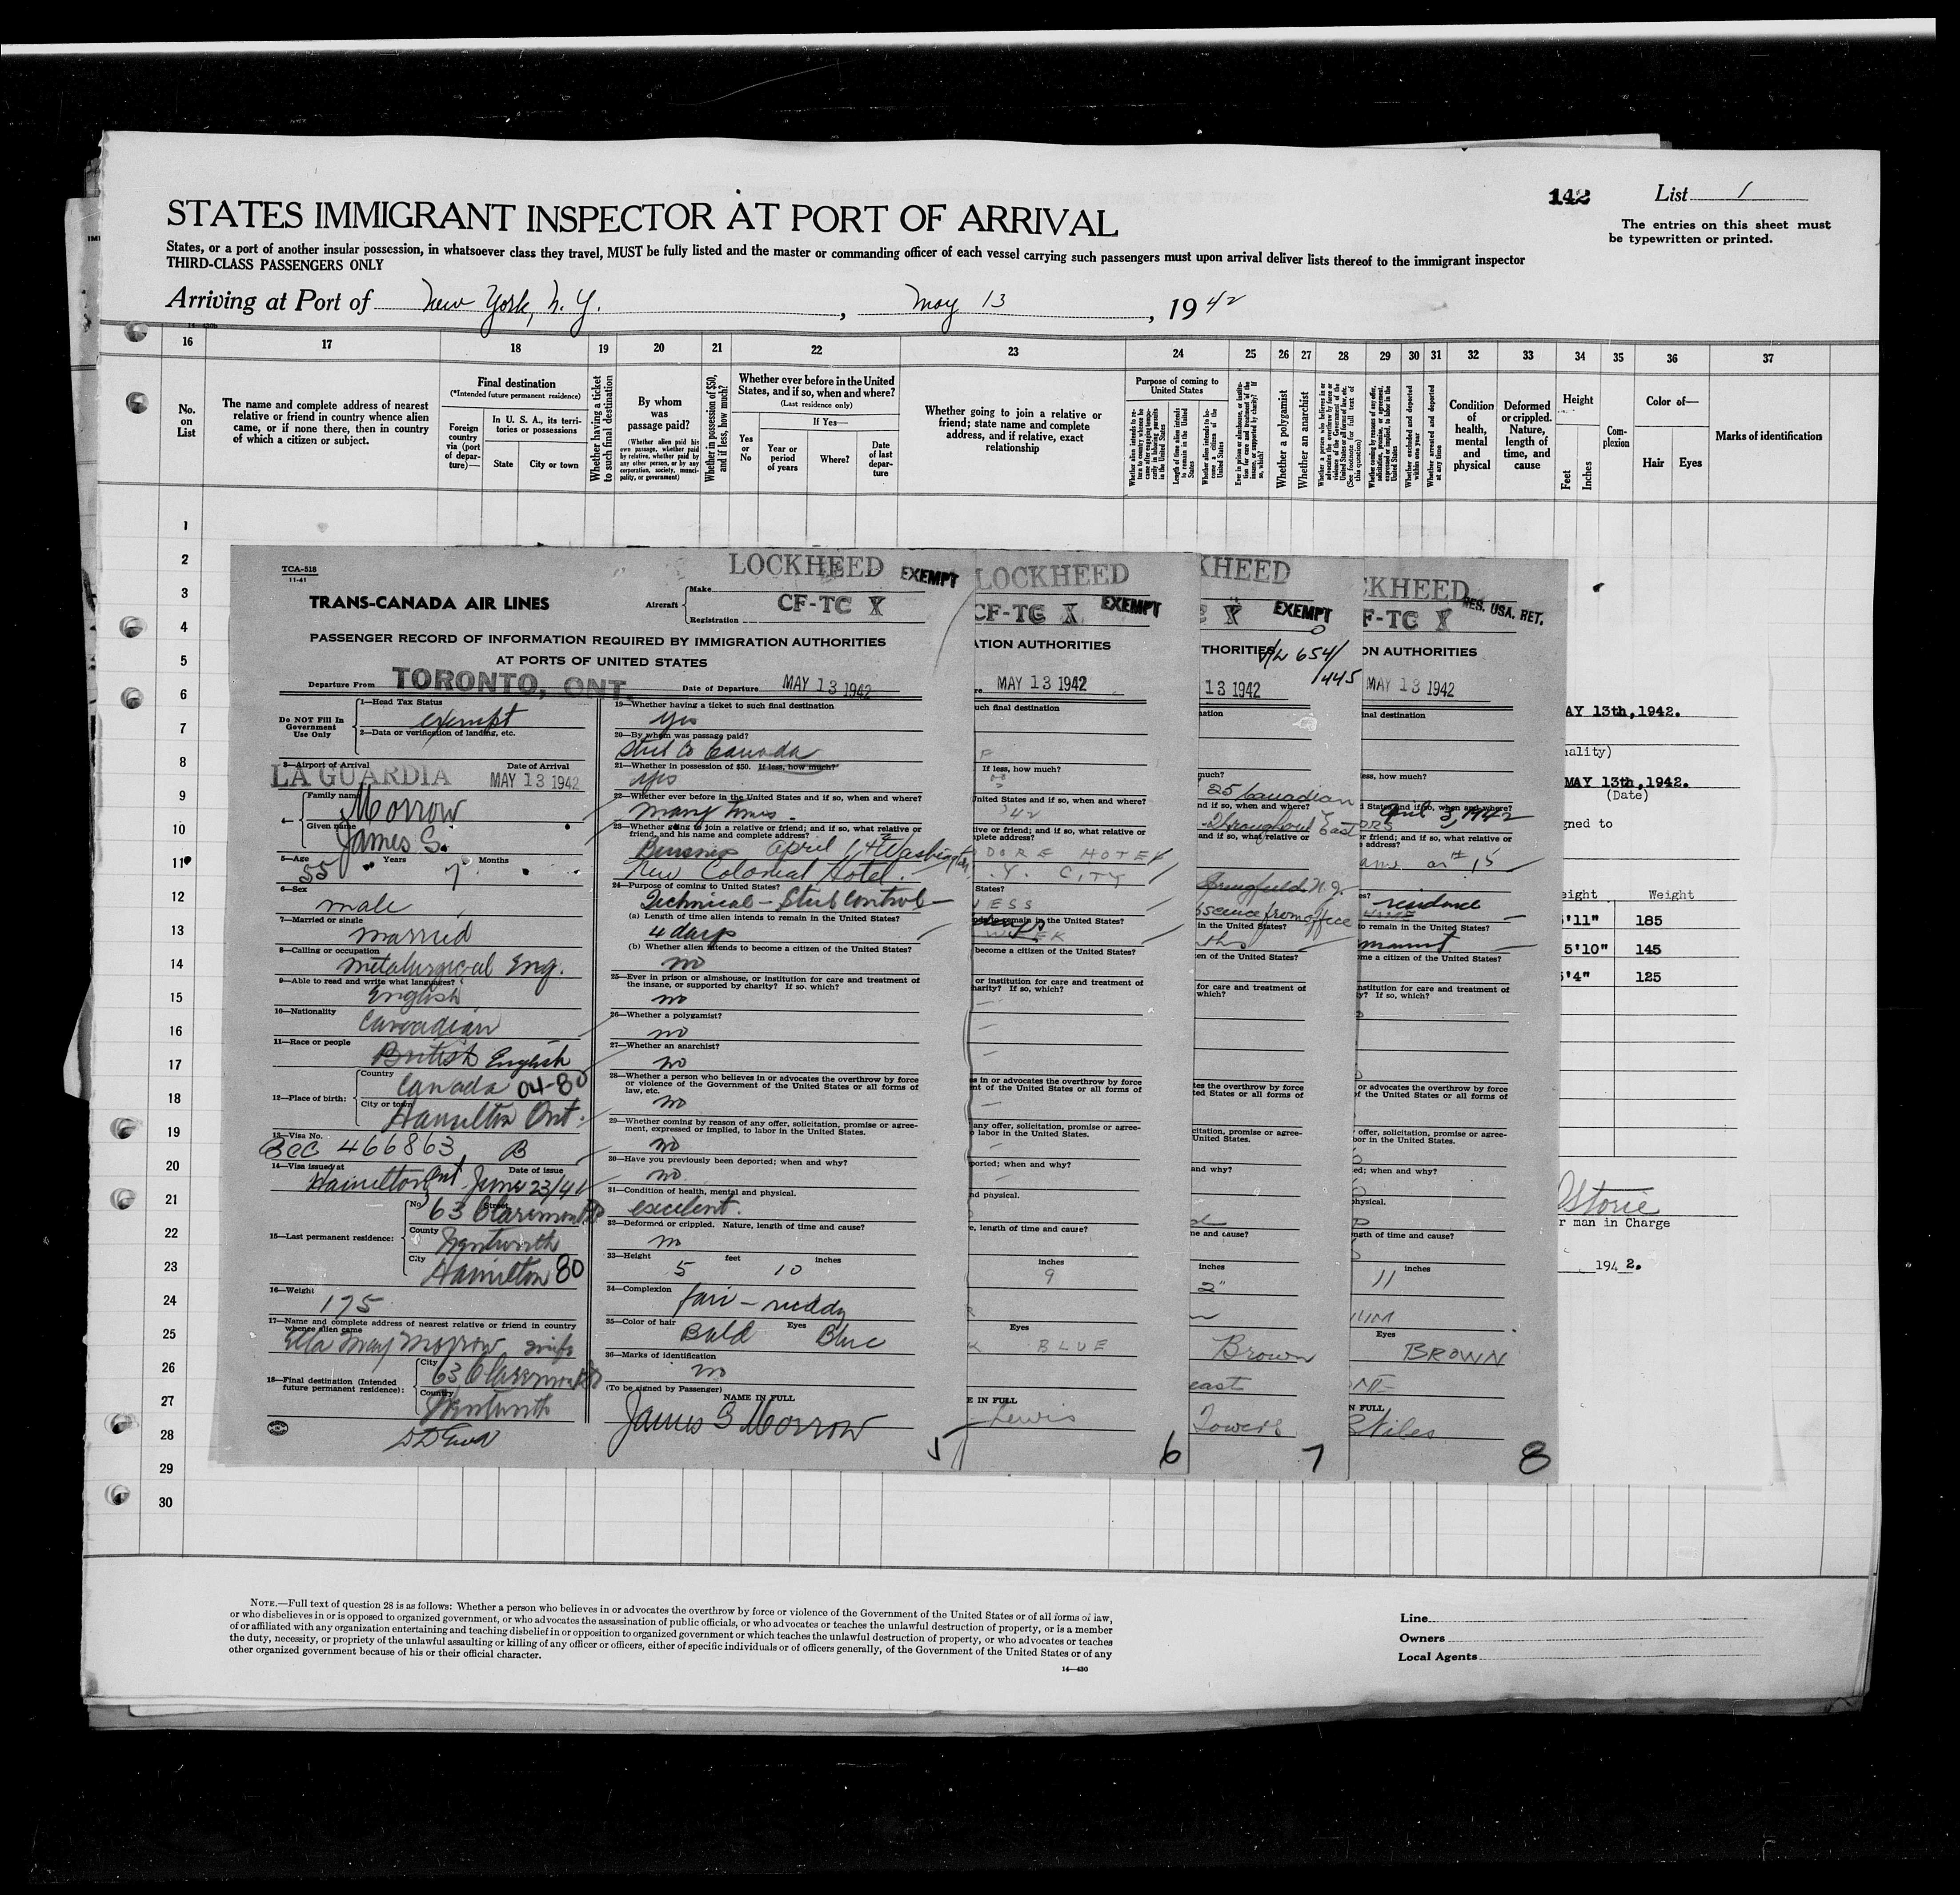 142 List 1
STATES IMMIGRANT INSPECTOR AT PORT OF ARRIVAL
The entries on this sheet must
be typewritten or printed.
States, or a port of another insular possession, in whatsoever class they travel, MUST be fully listed and the master or commanding officer of each vessel carrying such passengers must upon arrival deliver lists thereof to the immigrant inspector
THIRD-CLASS PASSENGERS ONLY
Arriving at Port of New York, N. Y. , May 13 , 19 42
16 17 18 19 20 21 22 23 24 25 26 27 28 29 30 31 32 33 34 35 36 37
No.
on
List
The name and complete address of nearest
relative or friend in country whence alien
came, or if none there, then in country
of which a citizen or subject.
Final destination
(*Intended future permanent residence)
Foreign
country
via (port
of depar-
ture)—
In U. S. A., its terri-
tories or possessions
State City or town
Whether having a ticket
to such final destination
By whom
was
passage paid?
(Whether alien paid his
own passage, whether paid
by relative, whether paid by
any other person, or by any
corporation, society, munici-
pality, or government)
Whether in possession of $50,
and if less, how much?
Whether ever before in the United
States, and if so, when and where?
(Last residence only)
If Yes—
Yes
or
No
Year or
period
of years
Where?
Date
of last
depar-
ture
Whether going to join a relative or
friend; state name and complete
address, and if relative, exact
relationship
Purpose of coming to
United States
Length of time alien intends
to remain in the United
States
Whether a polygamist
Whether an anarchist
Whether excluded and deported
within one year
Whether arrested and deported
at any time
Condition
of
health,
mental
and
physical
Deformed
or crippled.
Nature,
length of
time, and
cause
Height
Feet
Inches
Com-
plexion
Color of—
Hair Eyes
Marks of identification
1
2
3
4
5
6
7
8
9
10
11
12
13
14
15
16
17
18
19
20
21
22
23
24
25
26
27
28
29
30
TCA-518
11-41
LOCKHEED EXEMPT
TRANS-CANADA AIR LINES
Aircraft
Make
Registration CF-TC X
PASSENGER RECORD OF INFORMATION REQUIRED BY IMMIGRATION AUTHORITIES
AT PORTS OF UNITED STATES
Departure From TORONTO, ONT. Date of Departure MAY 13 1942
Do NOT Fill In
Government
Use Only
1—Head Tax Status
exempt
2—Data or verification of landing, etc.
3—Airport of Arrival Date of Arrival
LA GUARDIA MAY 13 1942
4— Family name
Morrow
Given name
James S.
5—Age Years Months
55 7
6—Sex
male
7—Married or single
Married
8—Calling or occupation
Metalurgical Eng.
9—Able to read and write what languages?
English
10—Nationality
Canadian
11—Race or people
British English
12—Place of birth:
Country
Canada 04-80
City or town
Hamilton Ont.
13—Visa No.
466863 B
14—Visa issued at Date of issue
Hamilton Ont June 23/41
15—Last permanent residence:
No. Street
63 Claremont
County
Wentworth
City
Hamilton 80
16—Weight
195
17—Name and complete address of nearest relative or friend in country
whence alien came
Ella May Morrow wife
18—Final destination (Intended
future permanent residence):
City
63 Claremont
Country
Wentworth
19—Whether having a ticket to such final destination
yes
20—By whom was passage paid?
Steel Co Canada
21—Whether in possession of $50. If less, how much?
yes
22—Whether ever before in the United States and if so, when and where?
many times.
23—Whether going to join a relative or friend; and if so, what relative or
friend, and his name and complete address?
Business April 14 Washington
New Colonial Hotel.
24—Purpose of coming to United States?
Technical — Steel Control —
(a) Length of time alien intends to remain in the United States?
4 days
(b) Whether alien intends to become a citizen of the United States?
no
25—Ever in prison or almshouse, or institution for care and treatment of
the insane, or supported by charity? If so, which?
no
26—Whether a polygamist?
no
27—Whether an anarchist?
no
28—Whether a person who believes in or advocates the overthrow by force
or violence of the Government of the United States or all forms of
law, etc.
no
29—Whether coming by reason of any offer, solicitation, promise or agree-
ment, expressed or implied, to labor in the United States.
no
30—Have you previously been deported; when and why?
no.
31—Condition of health, mental and physical.
excelent.
32—Deformed or crippled. Nature, length of time and cause?
no
33—Height feet inches
5 10
34—Complexion
fair — ruddy
35—Color of hair Eyes
Bald Blue
36—Marks of identification
no
(To be signed by Passenger)
NAME IN FULL
James S Morrow
5
LOCKHEED
CF-TC X EXEMPT
ATION AUTHORITIES
MAY 13 1942
uch final destination
If less, how much?
nited States and if so, when and where?
42
ive or friend; and if so, what relative or
plete address?
DORE HOTEL
.Y. CITY
States?
NESS
remain in the United States?
become a citizen of the United States?
or institution for care and treatment of
harity? If so, which?
s in or advocates the overthrow by force
nt of the United States or all forms of
any offer, solicitation, promise or agree-
o labor in the United States.
ported; when and why?
nd physical.
e, length of time and cause?
inches
9
Eyes
K BLUE
E IN FULL
Lewis
6
KHEED
X EXEMPT
THORITIES
654/
445
13 1942
ation
much?
25 Canadian
nd if so, when and where?
-Throughout East
and if so, what relative or
Springfield N.J.
bsence from office
in the United States?
en of the United States?
for care and treatment of
which?
tes the overthrow by force
ted States or all forms of
citation, promise or agree-
United States.
and why?
ne and cause?
inches
2"
Brown
east
Towers
7
CKHEED
RES. USA. RET.
F-TC X
ON AUTHORITIES
MAY 13 1942
inal destination
ess, how much?
d States and if so, when and where?
April 3, 1942
r friend; and if so, what relative or
address?
15
es? residence
to remain in the United States?
me a citizen of the United States?
nstitution for care and treatment of
y? If so, which?
or advocates the overthrow by force
of the United States or all forms of
offer, solicitation, promise or agree-
bor in the United States.
ed; when and why?
physical.
ngth of time and cause?
inches
11
Eyes
BROWN
N FULL
Stiles
8
AY 13th,1942.
nality)
MAY 13th,1942.
(Date)
gned to
eight Weight
5'11" 185
5'10" 145
5'4" 125
Storie
r man in Charge
194 2.
NOTE.—Full text of question 28 is as follows: Whether a person who believes in or advocates the overthrow by force or violence of the Government of the United States or of all forms of law,
or who disbelieves in or is opposed to organized government, or who advocates the assassination of public officials, or who advocates or teaches the unlawful destruction of property, or is a member
of or affiliated with any organization entertaining and teaching disbelief in or opposition to organized government or which teaches the unlawful destruction of property, or who advocates or teaches
the duty, necessity, or propriety of the unlawful assaulting or killing of any officer or officers, either of specific individuals or of officers generally, of the Government of the United States or of any
other organized government because of his or their official character.
14—430
Line
Owners
Local Agents